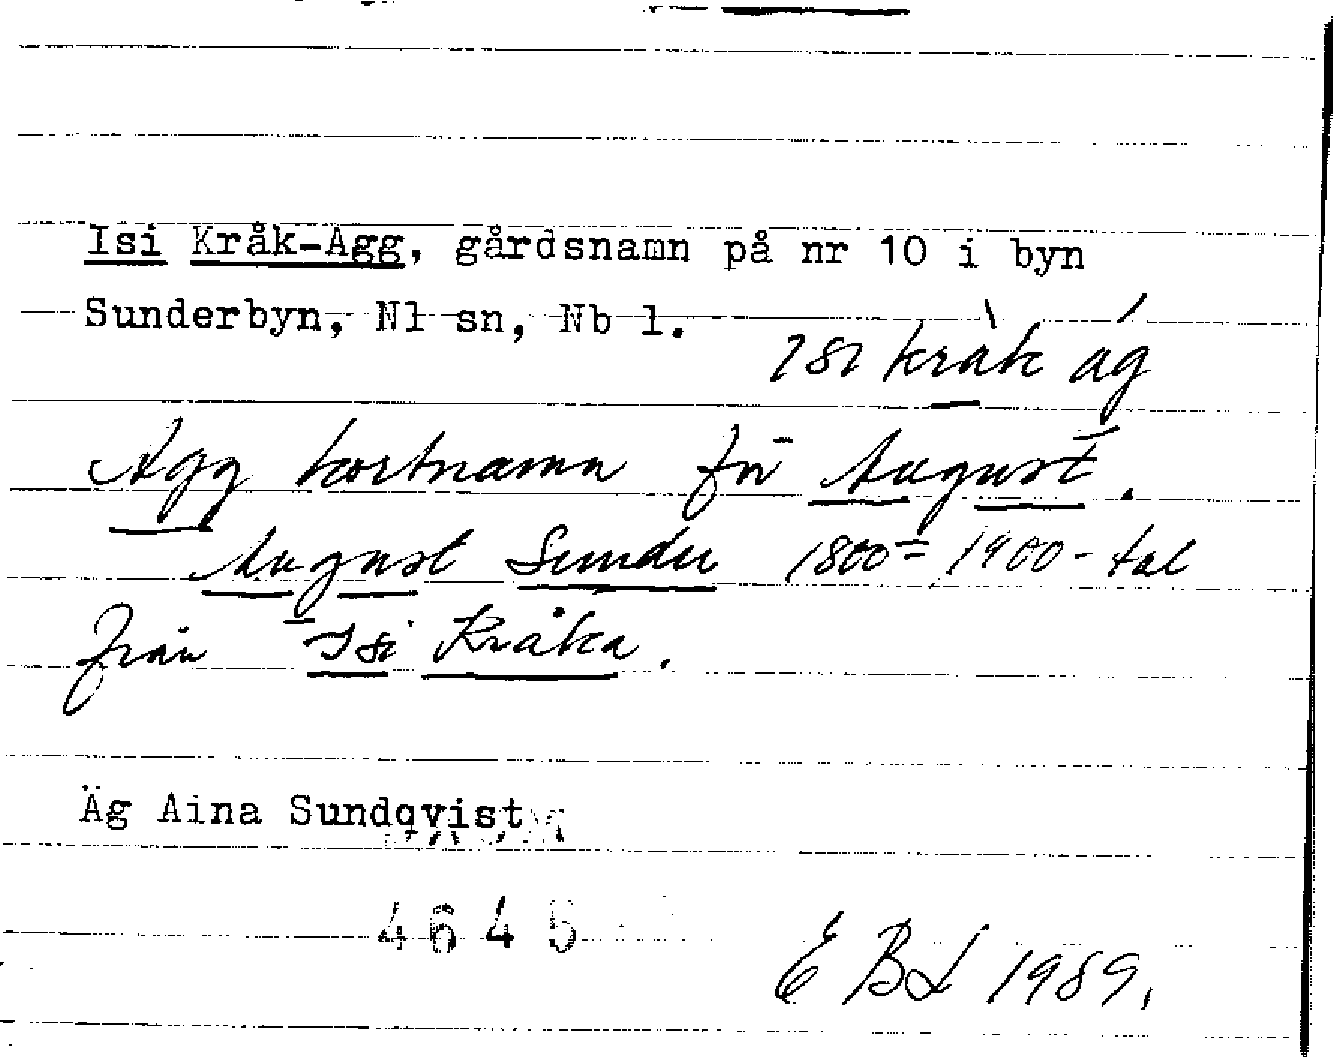 Isi Kråk-Agg, gårdsnamn på nr 10 i byn
Sunderbyn, Nl sn, Nb l.
Isi kràk ág
Agg kortnamn för August.
August Sunder 1800- 1900-tal
från Isi Kråka.
Äg Aina Sundqvist
4645
E B L 1989.